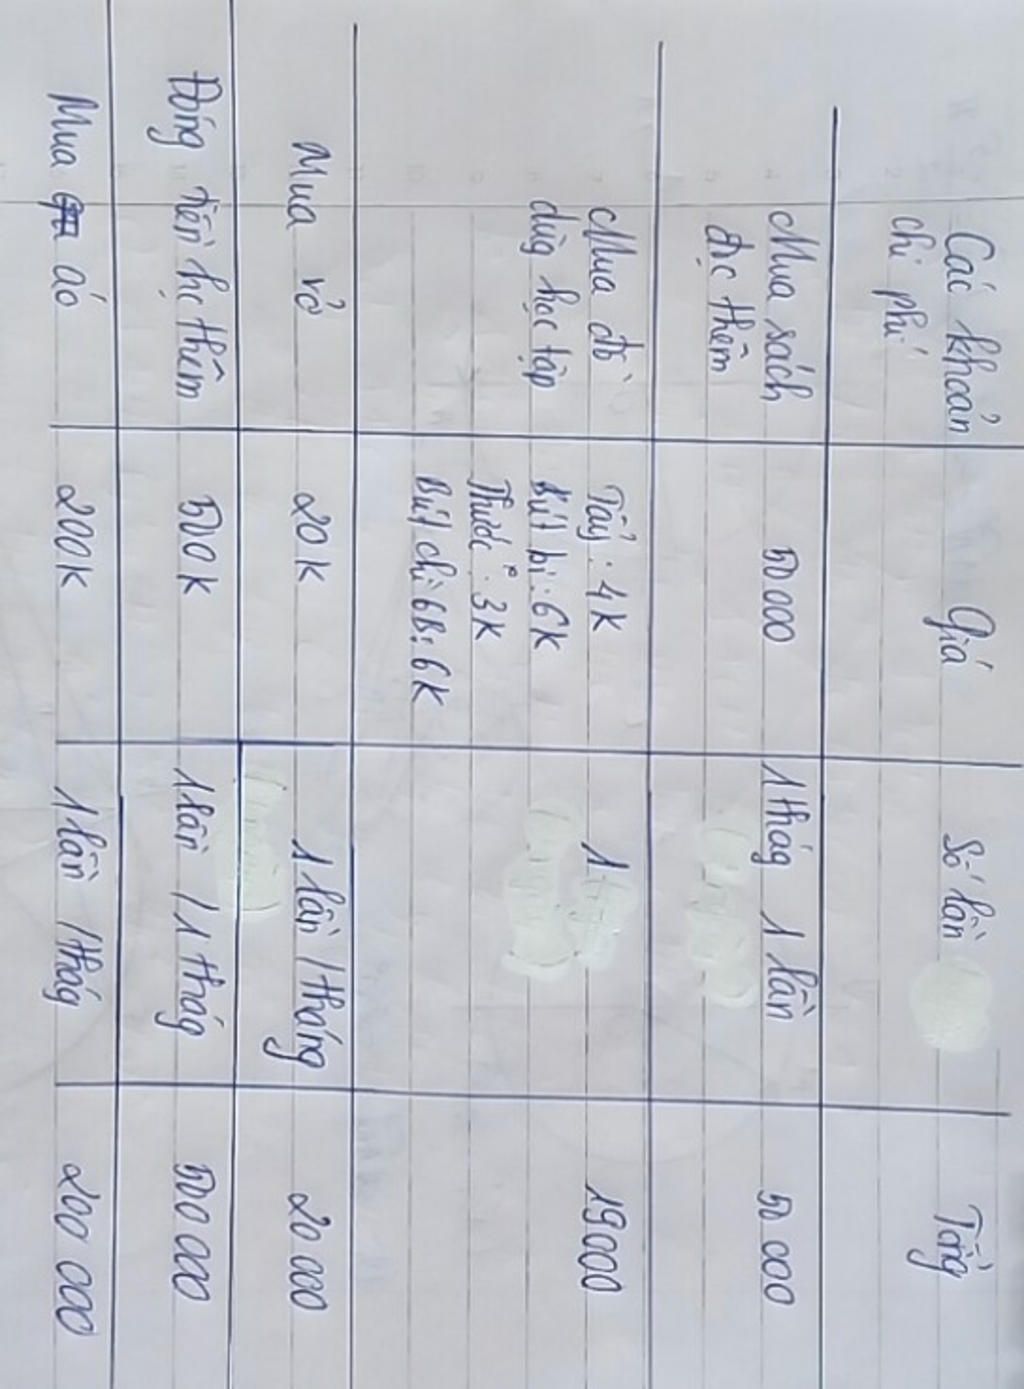 Các khoản chi phí | Giá | Số lần | Tổng
Mua sách đọc thêm | 50 000 | 1 thág 1 lần | 50 000
Mua đồ dùg học tập | Tẩy: 4K | 1 | 19 000
Bút bi: 6K
Thước: 3K
Bút chì 6B: 6K
Mua vở | 20K | 1 lần / tháng | 20 000
Đóng tiền học thêm | 500K | 1 lần / 1 thág | 500 000
Mua áo | 200K | 1 lần / thág | 200 000